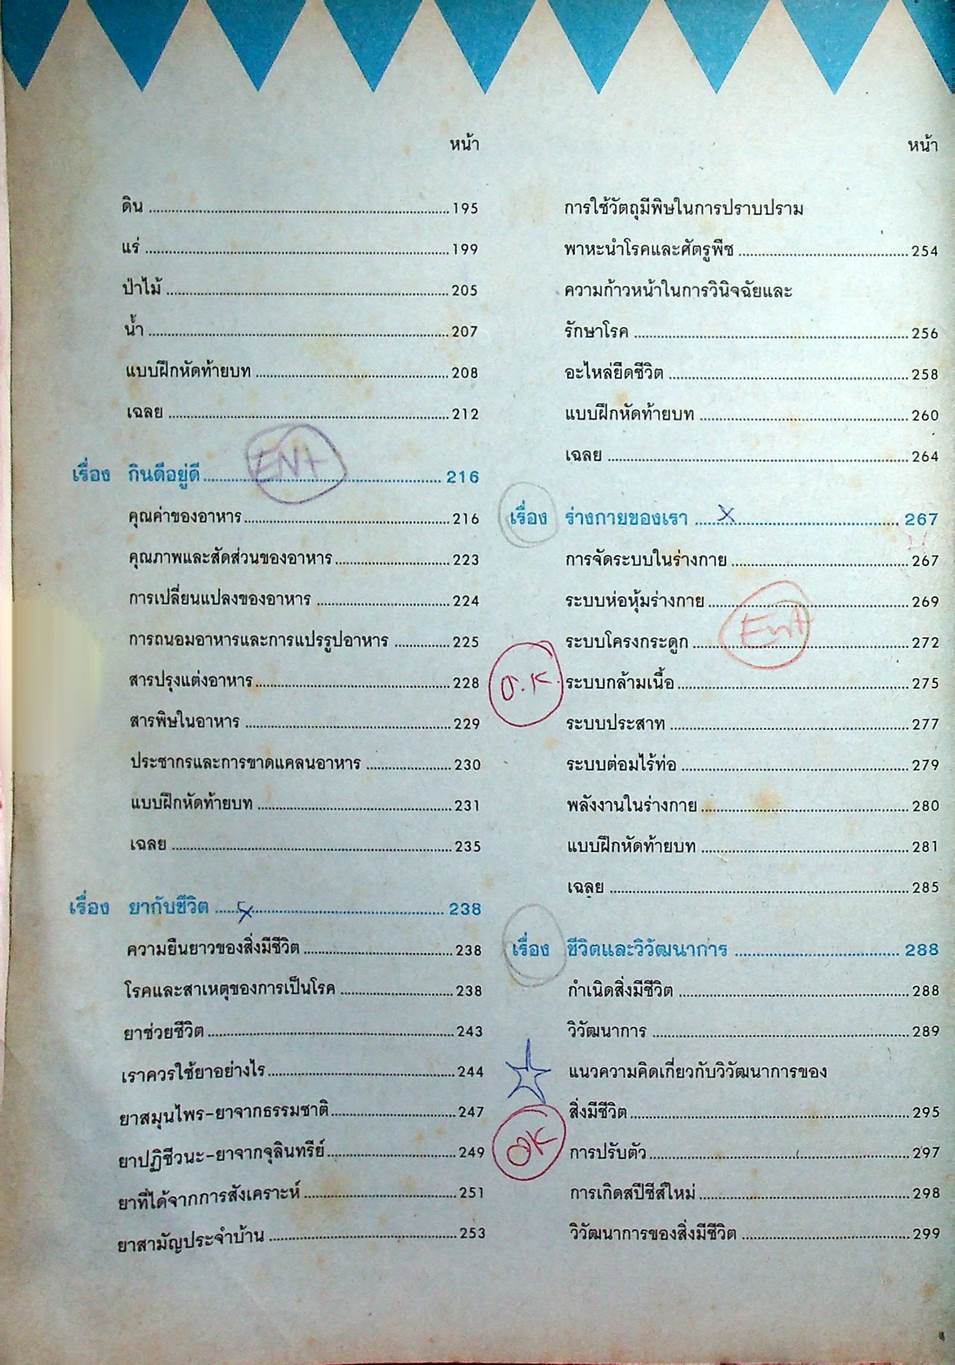 หน้า
ดิน 195
แร่ 199
ป่าไม้ 205
น้ำ 207
แบบฝึกหัดท้ายบท 208
เฉลย 212
เรื่อง กินดีอยู่ดี 216
ENT
คุณค่าของอาหาร 216
คุณภาพและสัดส่วนของอาหาร 223
การเปลี่ยนแปลงของอาหาร 224
การถนอมอาหารและการแปรรูปอาหาร 225
สารปรุงแต่งอาหาร 228
สารพิษในอาหาร 229
ประชากรและการขาดแคลนอาหาร 230
แบบฝึกหัดท้ายบท 231
เฉลย 235
เรื่อง ยากับชีวิต 238
ความยืนยาวของสิ่งมีชีวิต 238
โรคและสาเหตุของการเป็นโรค 238
ยาช่วยชีวิต 243
เราควรใช้ยาอย่างไร 244
ยาสมุนไพร-ยาจากธรรมชาติ 247
ยาปฏิชีวนะ-ยาจากจุลินทรีย์ 249
ยาที่ได้จากการสังเคราะห์ 251
ยาสามัญประจำบ้าน 253
หน้า
การใช้วัตถุมีพิษในการปราบปราม
พาหะนำโรคและศัตรูพืช 254
ความก้าวหน้าในการวินิจฉัยและ
รักษาโรค 256
อะไหล่ยืดชีวิต 258
แบบฝึกหัดท้ายบท 260
เฉลย 264
เรื่อง ร่างกายของเรา 267
การจัดระบบในร่างกาย 267
ระบบห่อหุ้มร่างกาย 269
Ent
ระบบโครงกระดูก 272
O.K.
ระบบกล้ามเนื้อ 275
ระบบประสาท 277
ระบบต่อมไร้ท่อ 279
พลังงานในร่างกาย 280
แบบฝึกหัดท้ายบท 281
เฉลย 285
เรื่อง ชีวิตและวิวัฒนาการ 288
กำเนิดสิ่งมีชีวิต 288
วิวัฒนาการ 289
แนวความคิดเกี่ยวกับวิวัฒนาการของ
สิ่งมีชีวิต 295
OK
การปรับตัว 297
การเกิดสปีชีส์ใหม่ 298
วิวัฒนาการของสิ่งมีชีวิต 299